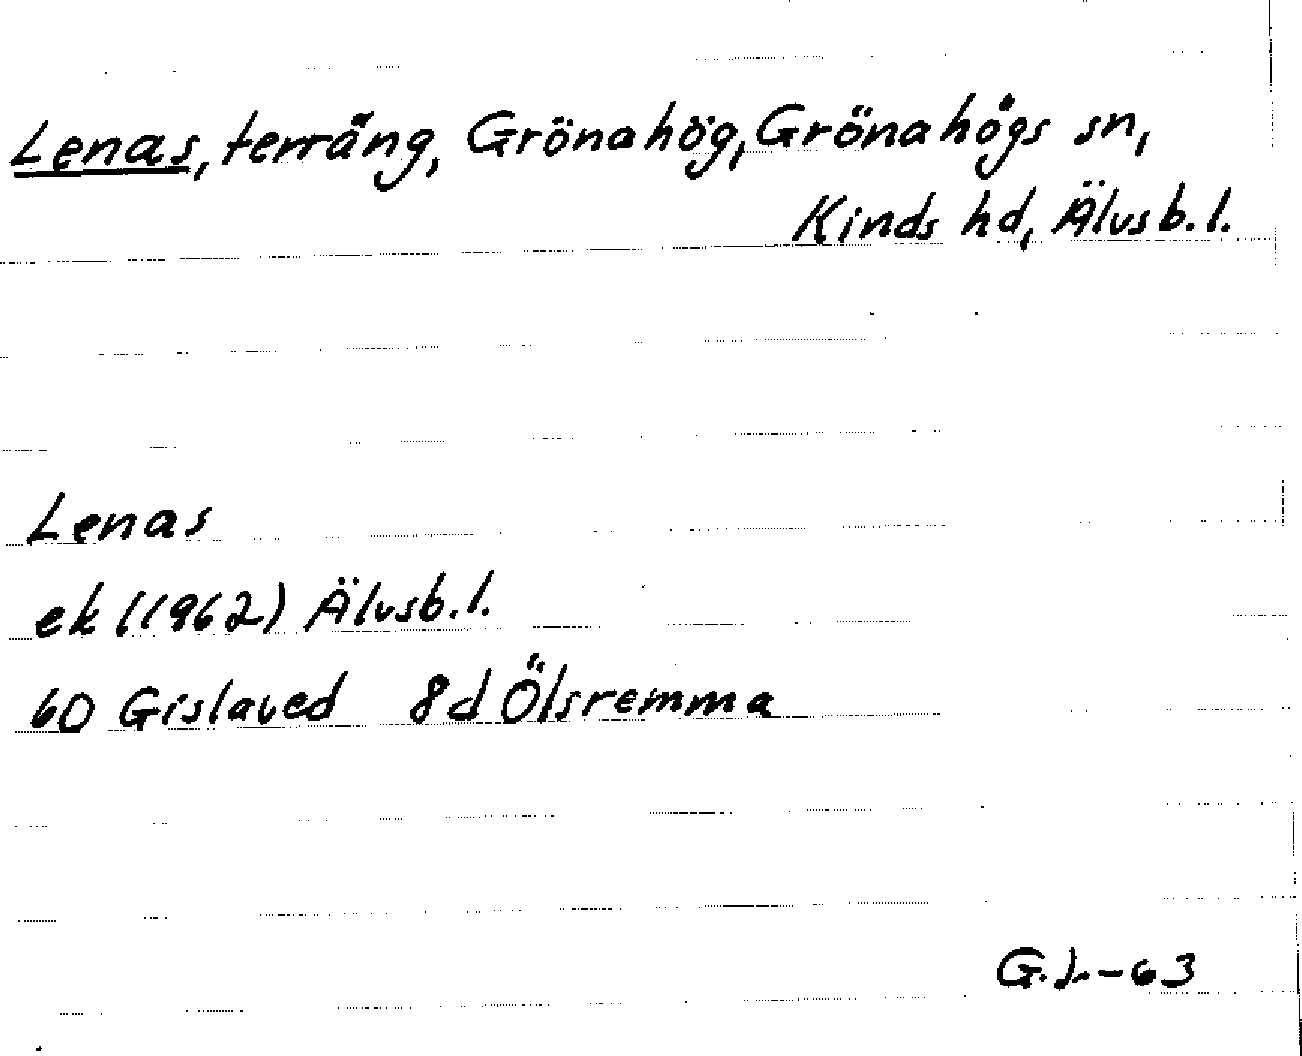 Lenas, terräng, Grönahög, Grönahögs sn,
Kinds hd, Älvsb.l.
Lenas
ek (1962) Älvsb.l.
6D Gislaved 8d Ölsremma
G.L.-63